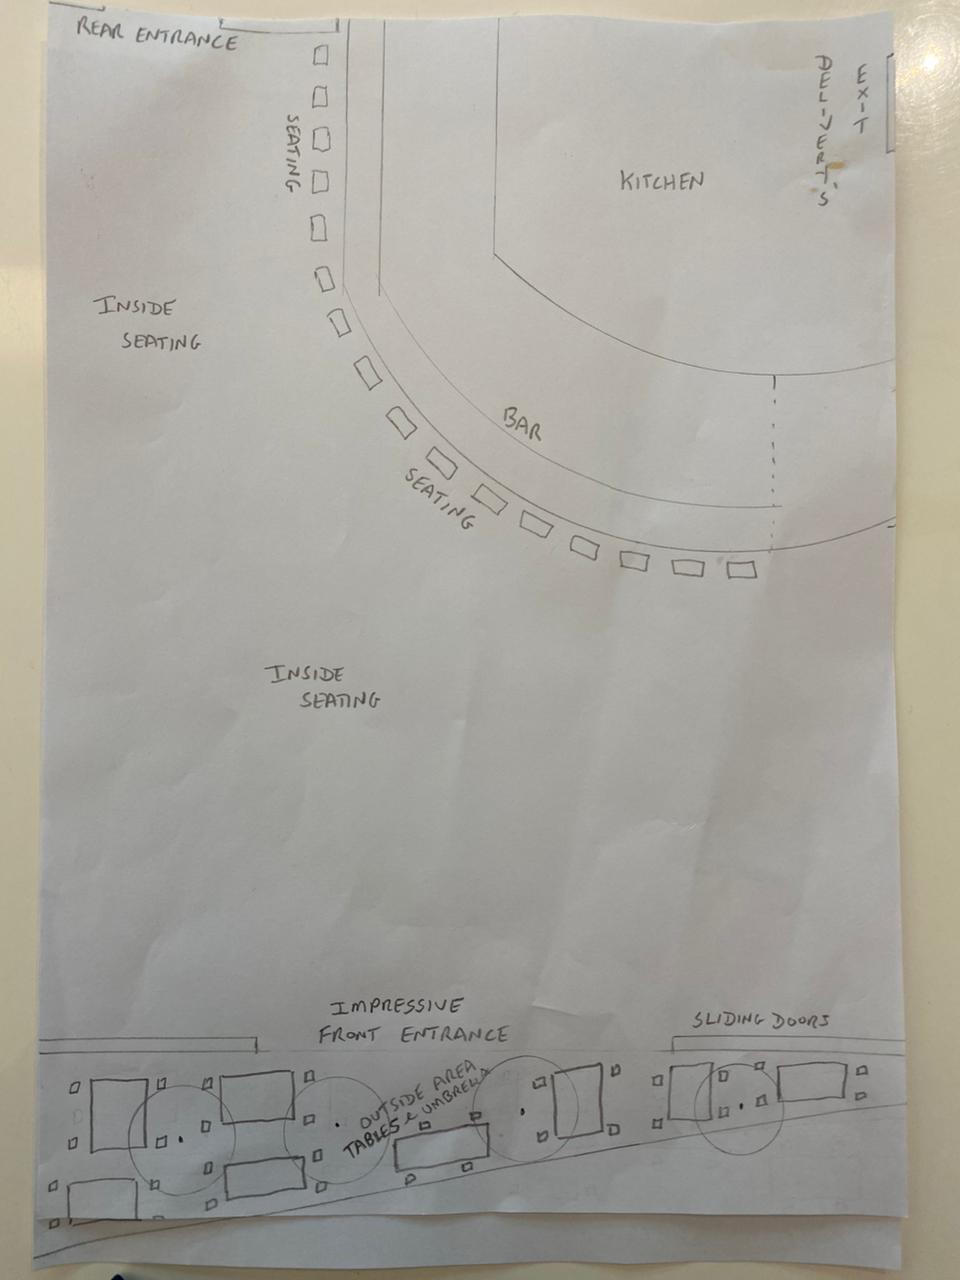 REAR ENTRANCE
SEATING
KITCHEN
EXIT
DELIVERY'S
INSIDE
SEATING
BAR
SEATING
INSIDE
SEATING
IMPRESSIVE
FRONT ENTRANCE
SLIDING DOORS
OUTSIDE AREA
TABLES & UMBRELLA